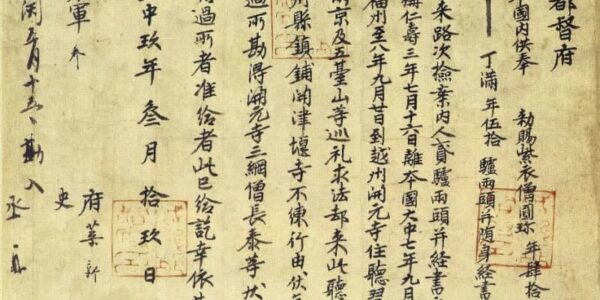 都督府
國内供奉 勅賜紫衣僧圓珍 年肆拾
丁滿年伍拾 驢兩頭并隨身經書
來路次檢案内人貳驢兩頭并經書
稱仁壽三年七月十六日離本國大中七年九月
福州至八年九月廿日到越州開元寺住聽習
兩京及五臺山等巡礼求法却來此聽
州縣鎮鋪關津堰寺不練行由伏
過所勘得開元寺三綱僧長泰等狀
過所者准給者此已給訖幸依
中玖年叁月拾玖日
府葉新
史
軍
關五月十五日勘入 丞